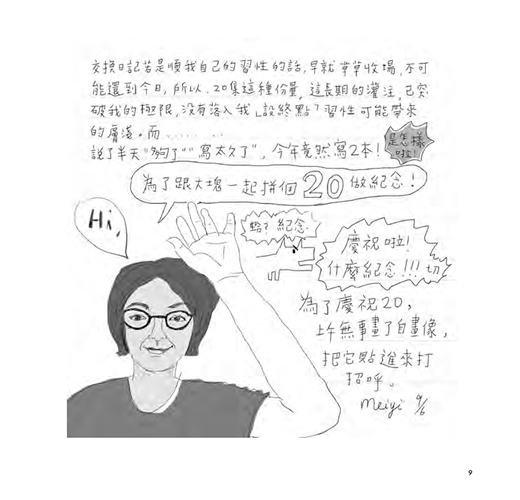 交換日記若是順我自己的習性的話,早就草草收場,不可
能還到今日,所以,20集這種份量,這長期的灌注,已突
破我的極限,没有落入我「設終點」習性可能帶來
的膚淺。而........
說了半天"夠了""寫太久了",今年竟然寫2本!
是怎樣
啦!
為了跟大塊一起拼個20做紀念!
Hi,
蛤?紀念.
慶祝啦!
什麼紀念!!!切
為了慶祝20,
上午無事畫了自畫像,
把它貼進來打
招呼。
meiyi 9/6
9